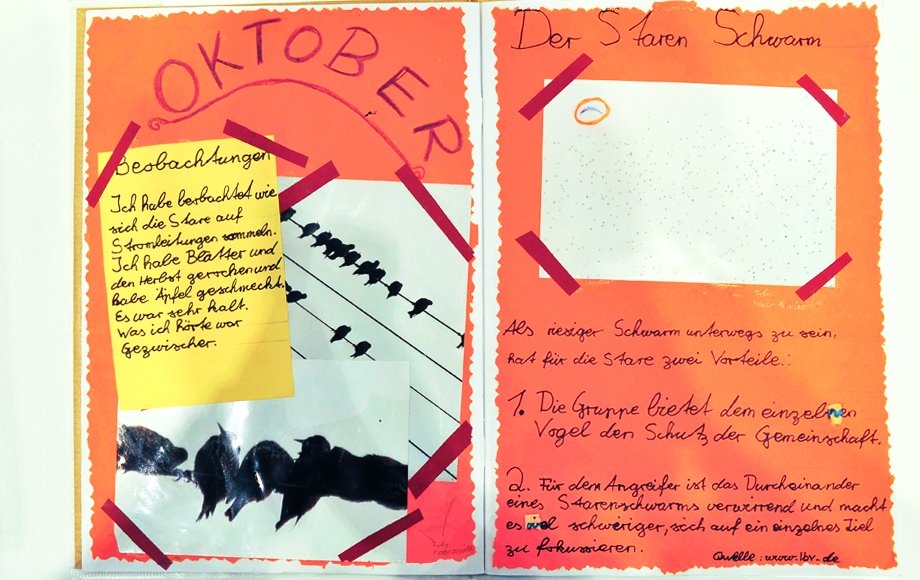 OKTOBER
Beobachtungen
Ich habe berbachtet wie
sich die Stare auf
Stromleitungen sammeln.
Ich habe Blätter und
den Herbst gerochen und
habe Äpfel geschmeckt.
Es war sehr kalt.
Was ich hörte war
Gezwischer.
Der Staren Schwarm
Als riesiger Schwarm unterwegs zu sein,
hat für die Stare zwei Vorteile.:
1. Die Gruppe bietet dem einzelnen
Vogel den Schutz der Gemeinschaft.
2. Für dem Angreifer ist das Durcheinander
eines Starenschwarms verwirrend und macht
es viel schwieriger, sich auf ein einzelnes Ziel
zu fokussieren.
Quelle: www.lbv.de